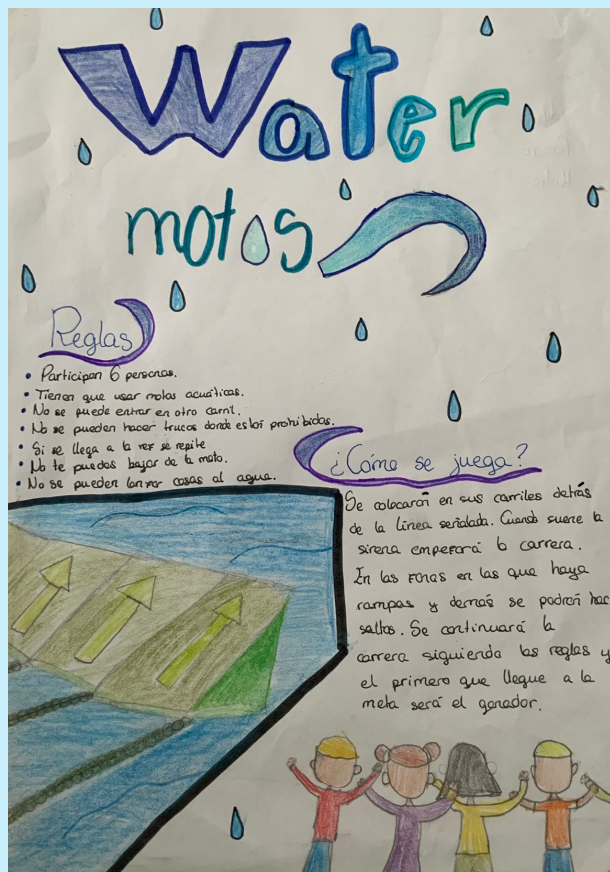 Water
motos
Reglas
• Participan 6 personas.
• Tienen que usar motos acuáticas.
• No se puede entrar en otro carril.
• No se pueden hacer trucos donde estén prohibidos.
• Si se llega a la vez se repite
• No te puedes bajar de la moto.
• No se pueden lanzar cosas al agua.
¿Cómo se juega?
Se colocarán en sus carriles detrás
de la línea señalada. Cuando suene la
sirena empezará la carrera.
En las zonas en las que haya
rampas y demás se podrán hac
saltos. Se continuará la
carrera siguiendo las reglas y
el primero que llegue a la
meta será el ganador.